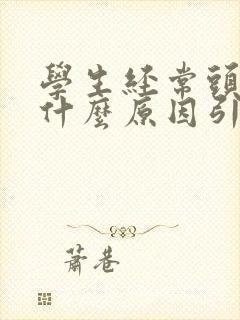 學生經常頭
什麼原因引
蕭巷